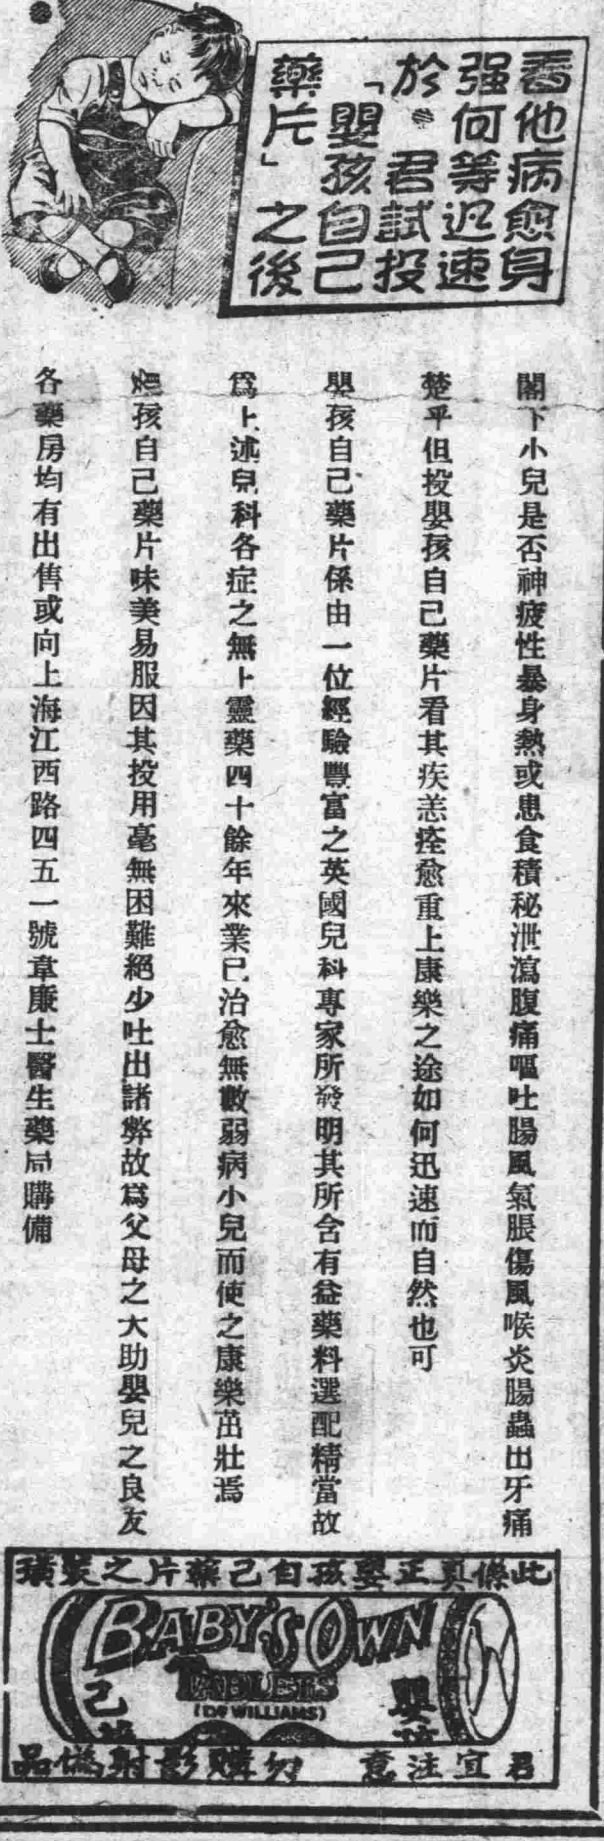 看他病愈身
强何等迅速
於 君試投
「嬰孩自己
藥片」之後
閣下小兒是否神疲性暴身熱或患食積秘泄瀉腹痛嘔吐腸風氣脹傷風喉炎腸蟲出牙痛
楚乎但投嬰孩自己藥片看其疾恙痊愈重上康樂之途如何迅速而自然也可
嬰孩自己藥片係由一位經驗豐富之英國兒科專家所發明其所含有益藥料選配精當故
爲上述兒科各症之無上靈藥四十餘年來業已治愈無數弱病小兒而使之康樂茁壯焉
嬰孩自己藥片味美易服因其投用毫無困難絕少吐出諸弊故爲父母之大助嬰兒之良友
各藥房均有出售或向上海江西路四五一號韋廉士醫生藥局購備
此係真正嬰孩自己藥片之裝璜
BABY'S OWN
TABLETS
(DR WILLIAMS)
嬰孩
己藥
君宜注意 勿購影射僞品